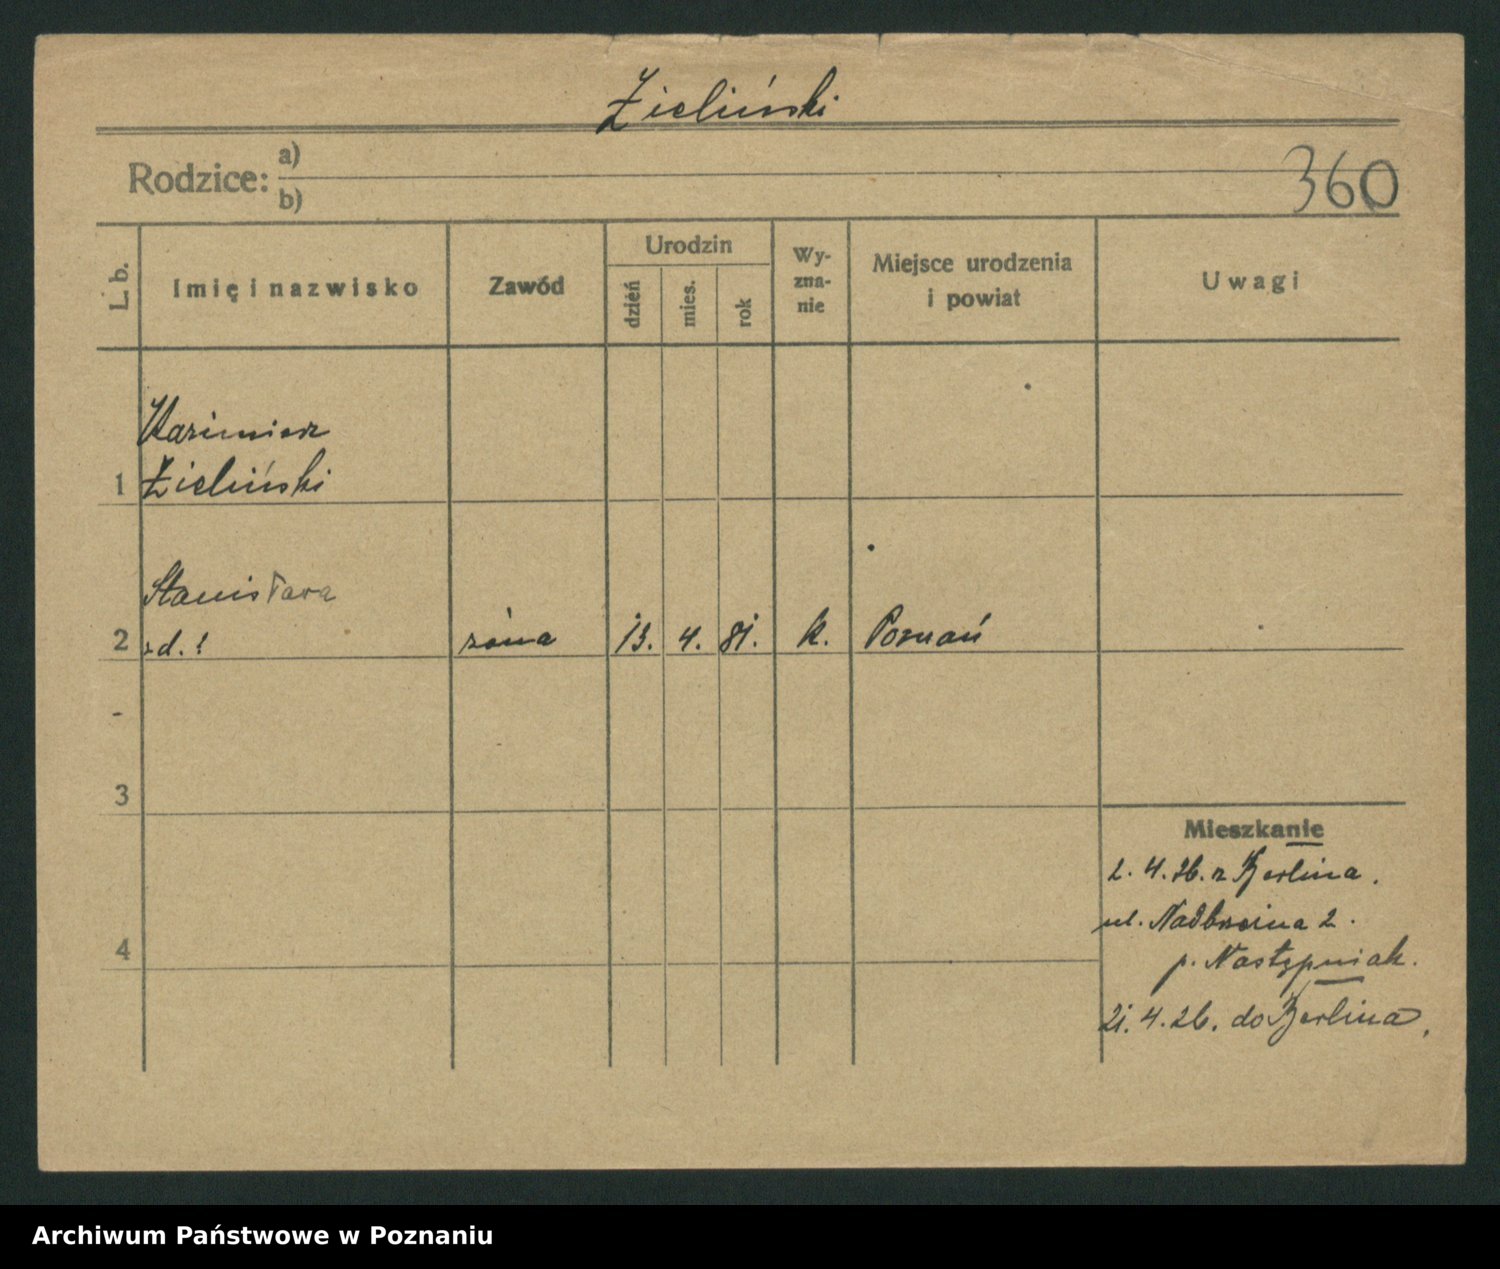 Zieliński
Rodzice: a)
b)
360
L. b.
Imię i nazwisko
Zawód
Urodzin
dzień
mies.
rok
Wy-
zna-
nie
Miejsce urodzenia
i powiat
Uwagi
Kazimierz
1 Zieliński
Stanisława
2 zd. ! żona 13. 4. 81. k. Poznań
3
Mieszkanie
2. 4. 26. z Berlina.
ul. Nadbrzeżna 2.
p. Następniak.
4
21. 4. 26. do Berlina.
Archiwum Państwowe w Poznaniu